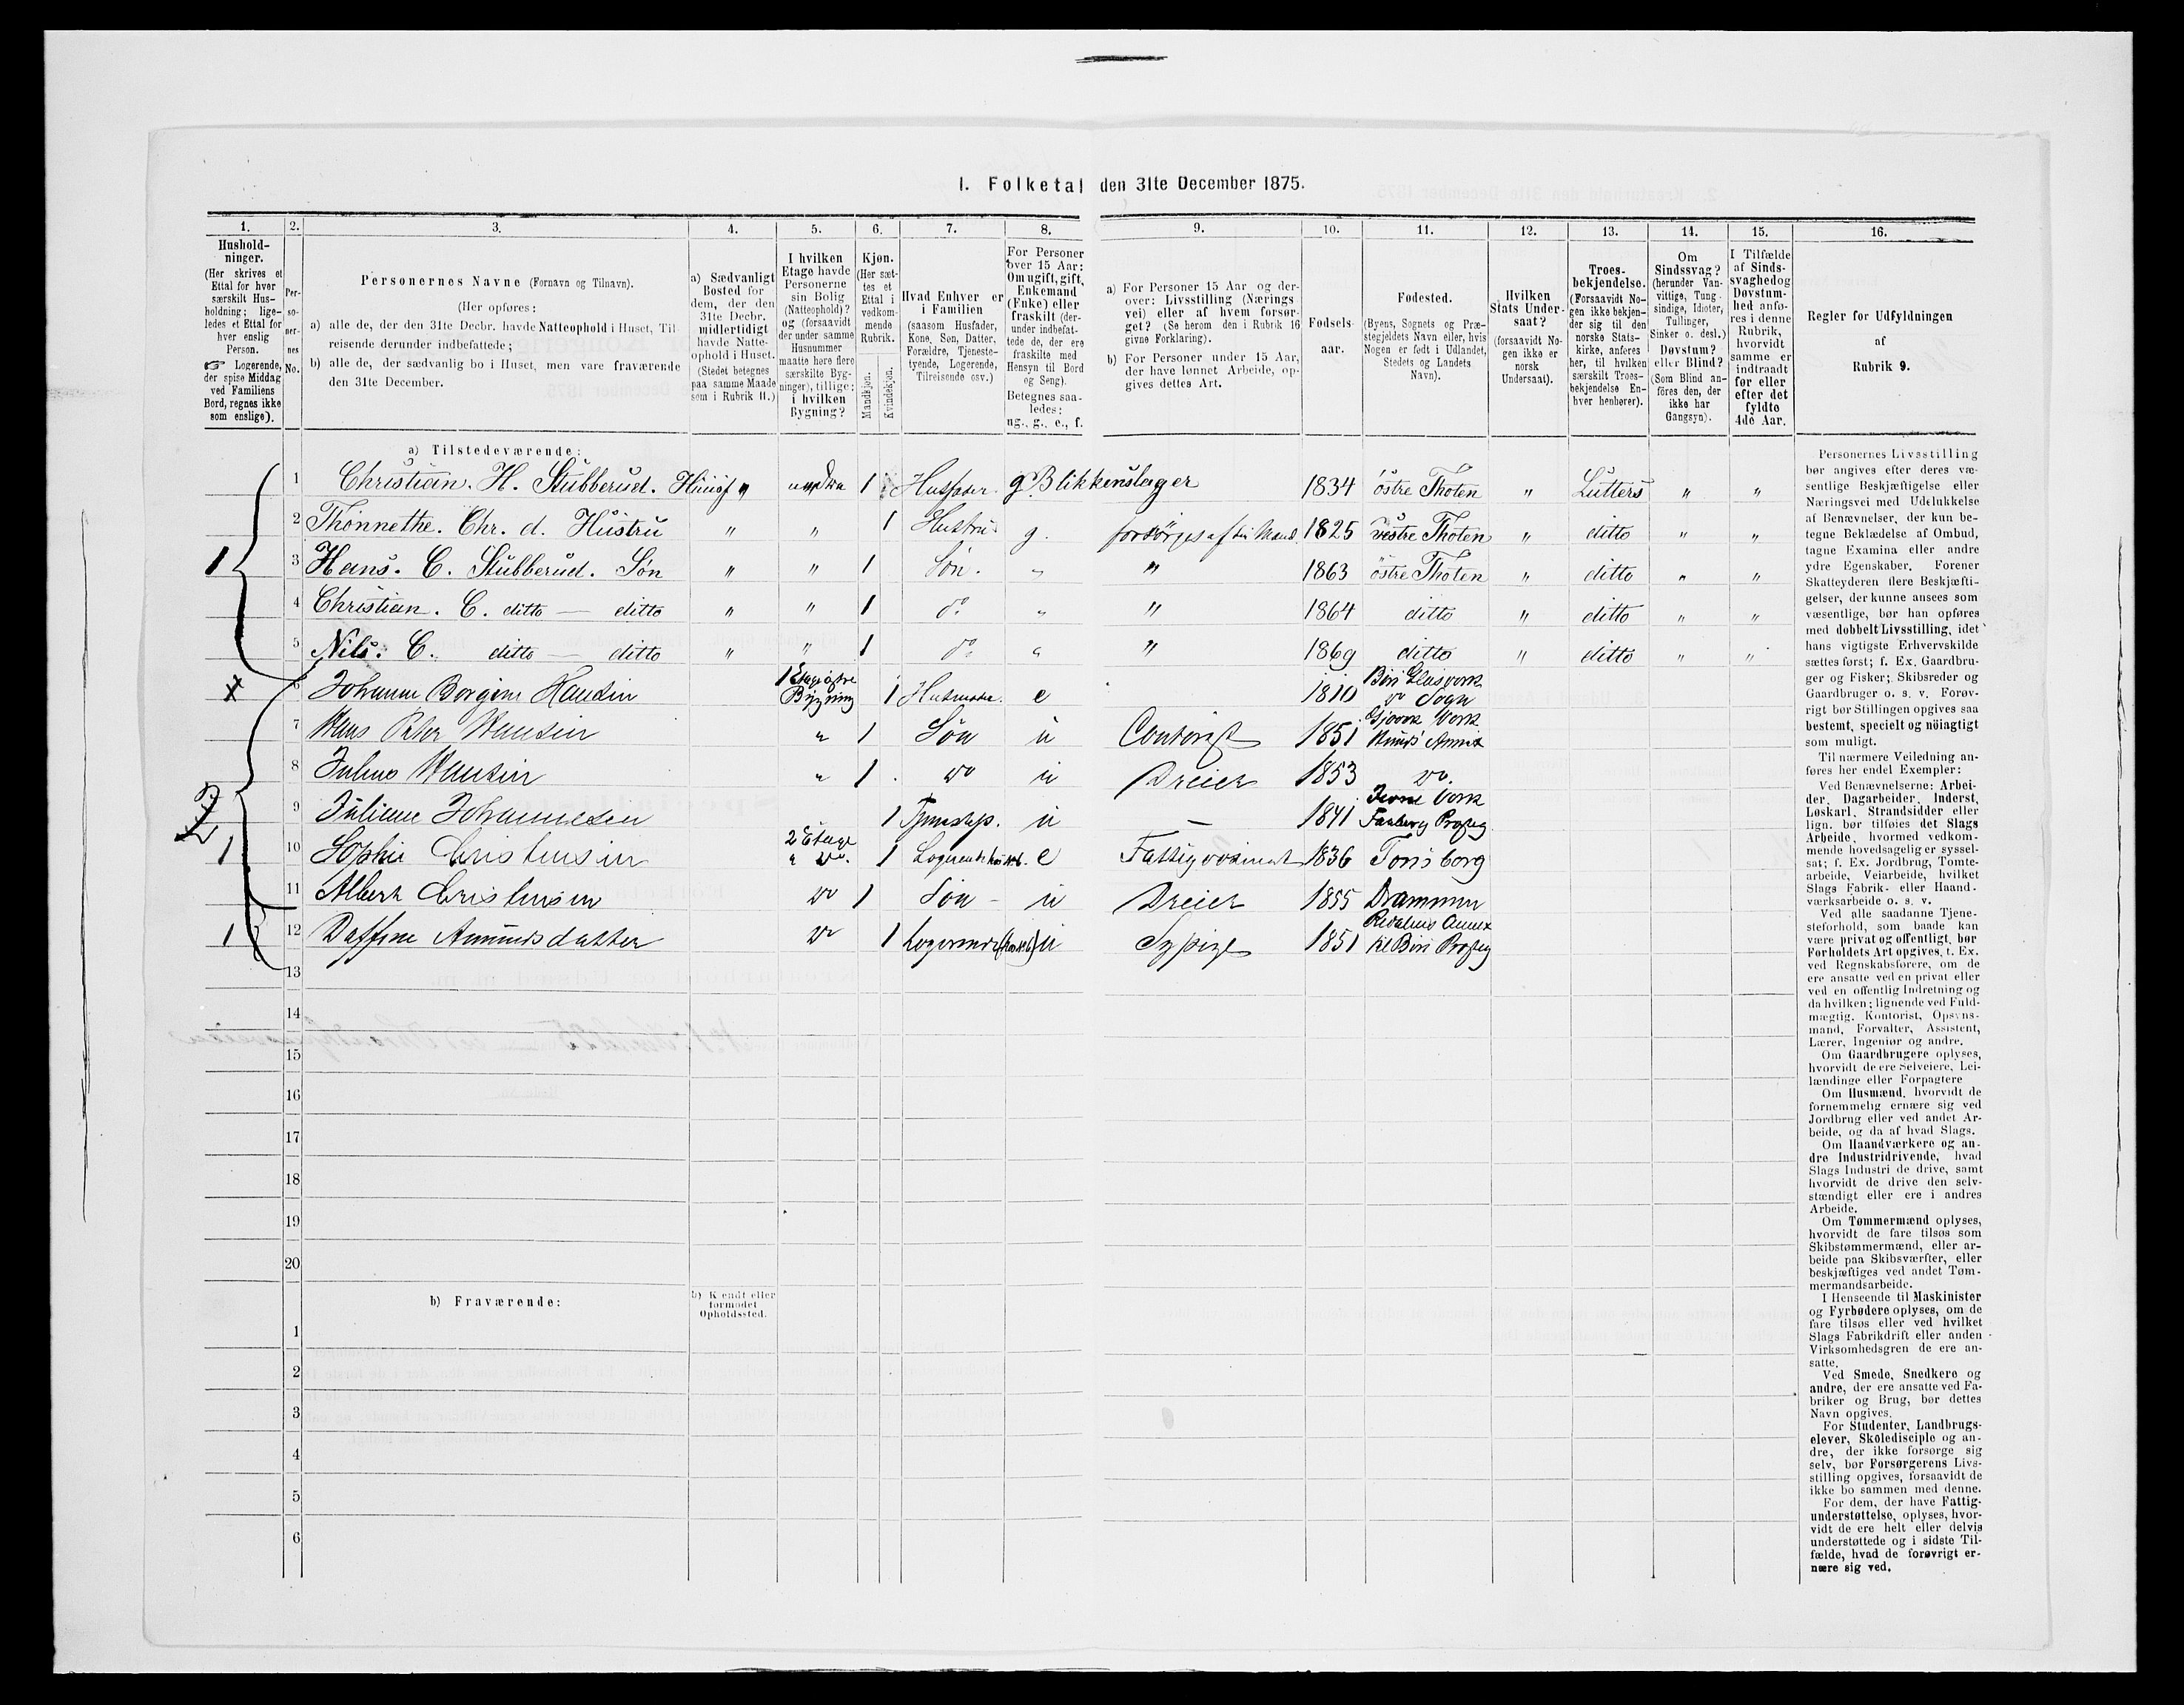 1. Folketal den 31te December 1875.
1. 2. 3. 4. 5. 6. 7. 8. 9. 10. 11. 12. 13. 14. 15. 16.
Hushold-
ninger.
(Her skrives et
Ettal for hver
særskilt Hus-
holdning; lige-
ledes et Ettal for
hver enslig
Person.
☞ Logerende,
der spise Middag
ved Familiens
Bord, regnes ikke
som enslige).
Per-
so-
ner-
nes
No.
Personernes Navne (Fornavn og Tilnavn).
(Her opføres:
a) alle de, der den 31te Decbr. havde Natteophold i Huset, Til-
reisende derunder indbefattede;
b) alle de, der sædvanlig bo i Huset, men vare fraværende
den 31te December.
a) Sædvanligt
Bosted for
dem, der den
31te Decbr.
midlertidigt
havde Natte-
ophold i Huset.
(Stedet betegnes
paa samme Maade
som i Rubrik 11.)
I hvilken
Etage havde
Personerne
sin Bolig
(Natteophold)?
og (forsaavidt
der under samme
Husnummer
maatte høre flere
særskilte Byg-
ninger), tillige:
i hvilken
Bygning?
Kjøn.
(Her sæt-
tes et
Ettal i
vedkom-
mende
Rubrik.
Mandkjøn.
Kvindekjøn.
Hvad Enhver er
i Familien
(saasom Husfader,
Kone, Søn, Datter,
Forældre, Tjeneste-
tyende, Logerende,
Tilreisende osv.)
For Personer
over 15 Aar:
Om ugift, gift,
Enkemand
(Enke) eller
fraskilt (der-
under indbefat-
tede de, der ere
fraskilte med
Hensyn til Bord
og Seng).
Betegnes saa-
ledes:
ug., g., e., f.
a) For Personer 15 Aar og der-
over: Livsstilling (Nærings
vei) eller af hvem forsør-
get? (Se herom den i Rubrik 16
givne Forklaring).
b) For Personer under 15 Aar,
der have lønnet Arbeide, op-
gives dettes Art.
Fødsels-
aar.
Fødested.
(Byens, Sognets og Præ-
stegjeldets Navn eller, hvis
Nogen er født i Udlandet,
Stedets og Landets
Navn).
Hvilken
Stats Under-
saat?
(forsaavidt No-
gen ikke er
norsk
Undersaat).
Troes-
bekjendelse.
(Forsaavidt No-
gen ikke bekjen-
der sig til den
norske Stats-
kirke, anføres
her, til hvilken
særskilt Troes-
bekjendelse En-
hver henhører).
Om
Sindssvag?
(herunder Van-
vittige, Tung-
sindige, Idioter,
Tullinger,
Sinker o. desl.)
Døvstum?
eller Blind?
(Som Blind an-
føres den, der
ikke har
Gangsyn).
I Tilfælde
af Sinds-
svaghedog
Døvstum-
hed anfø-
res i denne
Rubrik,
hvorvidt
samme er
indtraadt
før eller
efter det
fyldte
4de Aar.
Regler for Udfyldningen
af
Rubrik 9.
a) Tilstedeværende:
1 Christian. H. Stubberud. " 1 Husfader g Blikkenslager 1834 östre Thoten " Luthers " "
2 Thonnethe. Chr. d. Hustru " " 1 Hustru g. forsörges af sin Mand. 1825 vestre Thoten " ditto " "
1 3 Hans. C. Stubberud. Søn " " 1 Søn. " " 1863 östre Thoten " ditto " "
4 Christian. C. ditto — ditto " " 1 do " " 1864 ditto " ditto " "
5 Nils. C. ditto — ditto " " 1 do " " 1869 ditto " ditto " "
6 Johanne 1 Etage østre Bygning 1 Husmoder. e 1810 Biri do Sogn
7 Hans Peter Hansen " 1 Søn u Contorist 1851
8 Julius Hansen " 1 do u Dreier 1853 do.
2 9 Juliane Johannesen 1 u — 1841 Faaberg
1 10 Sophie Christensen 2 Etage " do. 1 Logerende e 1836 Tønsborg
11 Albert Christensen do 1 Søn - u Dreier 1855 Drammen
1 12 Amundsdatter do 1 Logerende u Sypige 1851 Biri
13
14
15
16
17
18
19
20
b) Fraværende:
b) Kendt eller
formodet
Opholdssted.
1
2
3
4
5
6
Personernes Livsstilling
bør angives efter deres væ-
sentlige Beskjæftigelse eller
Næringsvei med Udelukkelse
af Benævnelser, der kun be-
tegne Beklædelse af Ombud,
tagne Examina eller andre
ydre Egenskaber. Forener
Skatteyderen flere Beskjæfti-
gelser, der kunne ansees som
væsentlige, bør han opføres
med dobbelt Livsstilling, idet
hans vigtigste Erhvervskilde
sættes først; f. Ex. Gaardbru-
ger og Fisker; Skibsreder og
Gaardbruger o. s. v. Forøv-
rigt bør Stillingen opgives saa
bestemt, specielt og nøiagtigt
som muligt.
Til nærmere Veiledning an-
føres her endel Exempler:
Ved Benævnelserne: Arbei-
der, Dagarbeider, Inderst,
Løskarl, Strandsidder eller
lign. bør tilføies det Slags
Arbeide, hvormed vedkom-
mende hovedsagelig er syssel-
sat; f. Ex. Jordbrug, Tomte-
arbeide, Veiarbeide, hvilket
Slags Fabrik- eller Haand-
værksarbeide o. s. v.
Ved alle saadanne Tjene-
steforhold, som baade kan
være privat og offentligt, bør
Forholdets Art opgives, t. Ex.
ved Regnskabsførere, om de
ere ansatte ved en privat eller
ved en offentlig Indretning og
da hvilken; lignende ved Fuld-
mægtig, Kontorist, Opsyns-
mand, Forvalter, Assistent,
Lærer, Ingeniør og andre.
Om Gaardbrugere oplyses,
hvorvidt de ere Selveiere, Lei-
lændinge eller Forpagtere
Om Husmænd, hvorvidt de
fornemmelig ernære sig ved
Jordbrug eller ved andet Ar-
beide, og da af hvad Slags.
Om Haandværkere og an-
dre Industridrivende, hvad
Slags Industri de drive, samt
hvorvidt de drive den selv-
stændigt eller ere i andres
Arbeide.
Om Tømmermænd oplyses,
hvorvidt de fare tilsøs som
Skibstømmermænd, eller ar-
beide paa Skibsværfter, eller
beskjæftiges ved andet Tøm-
mermandsarbeide.
I Henseende til Maskinister
og Fyrbødere oplyses, om de
fare tilsøs eller ved hvilket
Slags Fabrikdrift eller anden
Virksomhedsgren de ere an-
satte.
Ved Smede, Snedkere og
andre, der ere ansatte ved Fa-
briker og Brug, bør dettes
Navn opgives.
For Studenter, Landbrugs-
elever, Skoledisciple og an-
dre, der ikke forsørge sig
selv, bør Forsørgerens Livs-
stilling opgives, forsaavidt de
ikke bo sammen med denne.
For dem, der have Fattig-
understøttelse, oplyses, hvor-
vidt de ere helt eller delvis
understøttede og i sidste Til-
fælde, hvad de forøvrigt er-
nære sig ved.